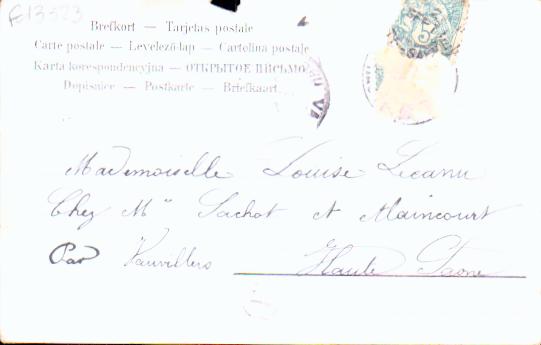 E13523
Brefkort — Tarjetas postale
Carte postale — Levelező-lap — Cartolina postale
Karta korespondencyjna — ОТКРЫТОЕ ПИСЬМО
Dopisnice — Postkarte — Briefkaart
5
Mademoiselle Louise Lecanu
Chez Mrs Sachot et Maincourt
Par Vauvillers Haute Saone